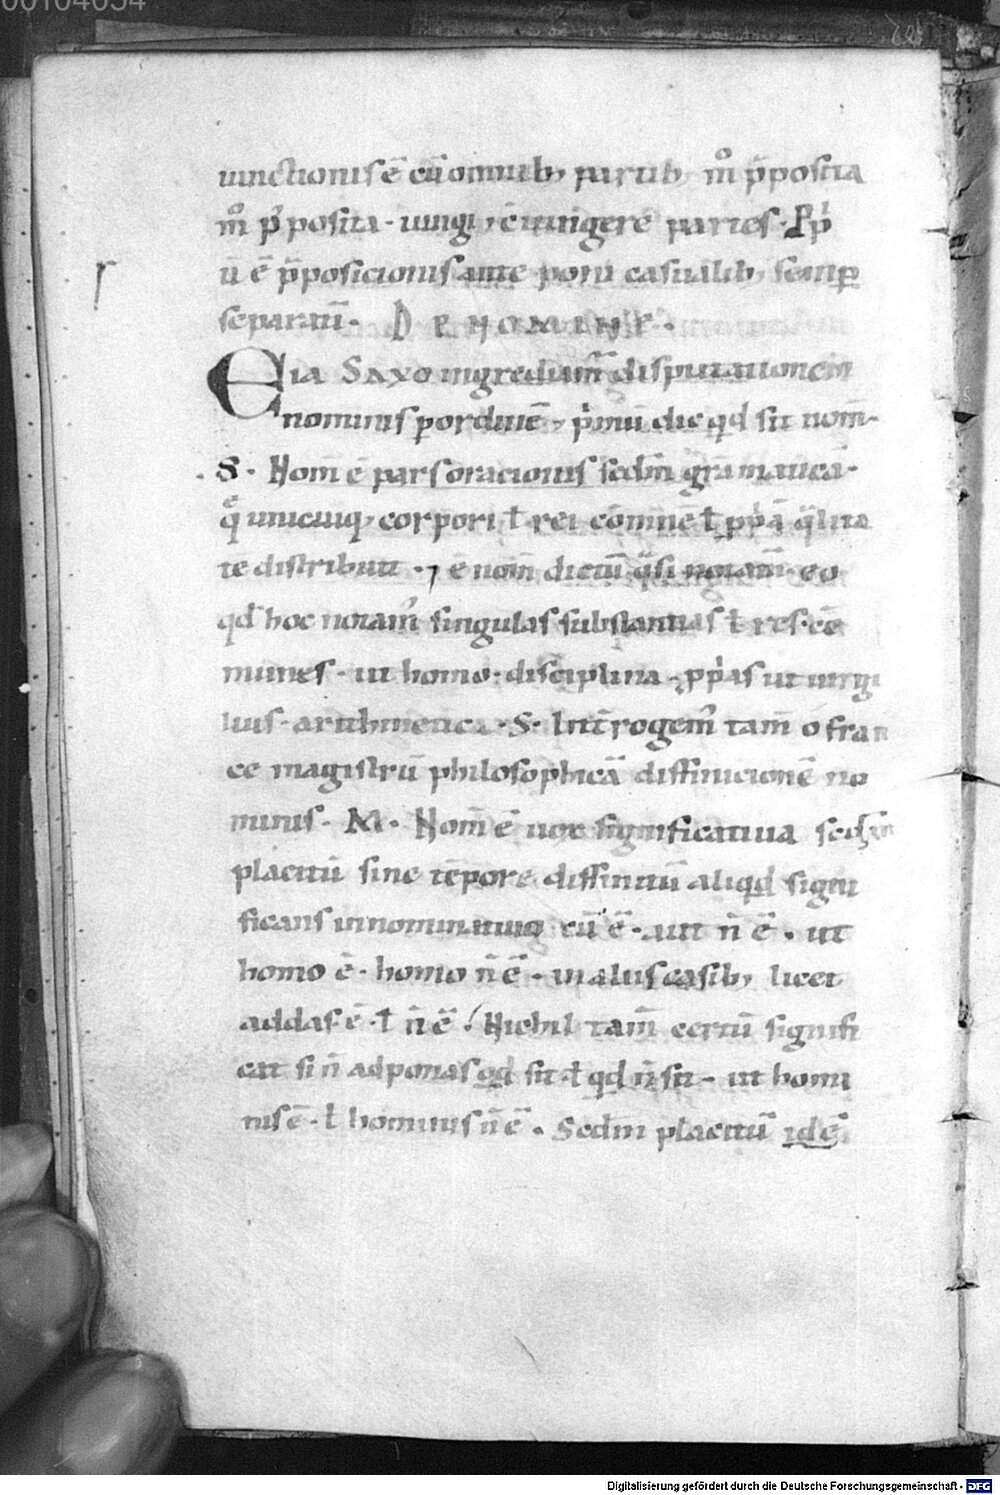 00104054
iunctionis ē cū omnib; partib; m̊ p̄posita
m̊ p̄posita · iungi, c̄iungere partes · Pp̄
ū ē p̄posicionis ante poni casualib; semꝑ
separati᷑. DE NOMINE.
Eia Saxo ingrediam᷑ disputationem
nominis ꝑ ordinē, p̍mū dic qd̄ sit nom̄·
S· Nom̄ ē pars oracionis scdm̄ grāmaticā·
q̄ unicuiq; corpori ł rei cōmunē ł ꝓp̄ā q̄lita
tē distribuit · ⁊ ē nom̄ dictū q̄si notam̄· eo
qd̄ hoc notam᷒ singulas substantias ł res· cō
munes · ut homo · disciplina · ꝓp̍as ut uirgi
lius · arithmetica · S· Int̄rogem᷒ tam̄ o fran
ce magistrū philosophicā diffinicionē no
minis · M· Nom̄ ē uox significatiua scdm̄
placitū sine tēpore diffinitū aliqd̄ signi
ficans in nominatiuo cū ē· aut n̄ ē· ut
homo ē· homo n̄ ē· in aliis casib; licet
addas· ē· ł n̄ ē· Nichil tam̄ certū signifi
cat si n̄ adponas qd̄ sit ł qd̄ n̄ sit · ut homi
nis ē· ł hominis n̄ ē· Scdm̄ placitū id ē·
Digitalisierung gefördert durch die Deutsche Forschungsgemeinschaft - DFG